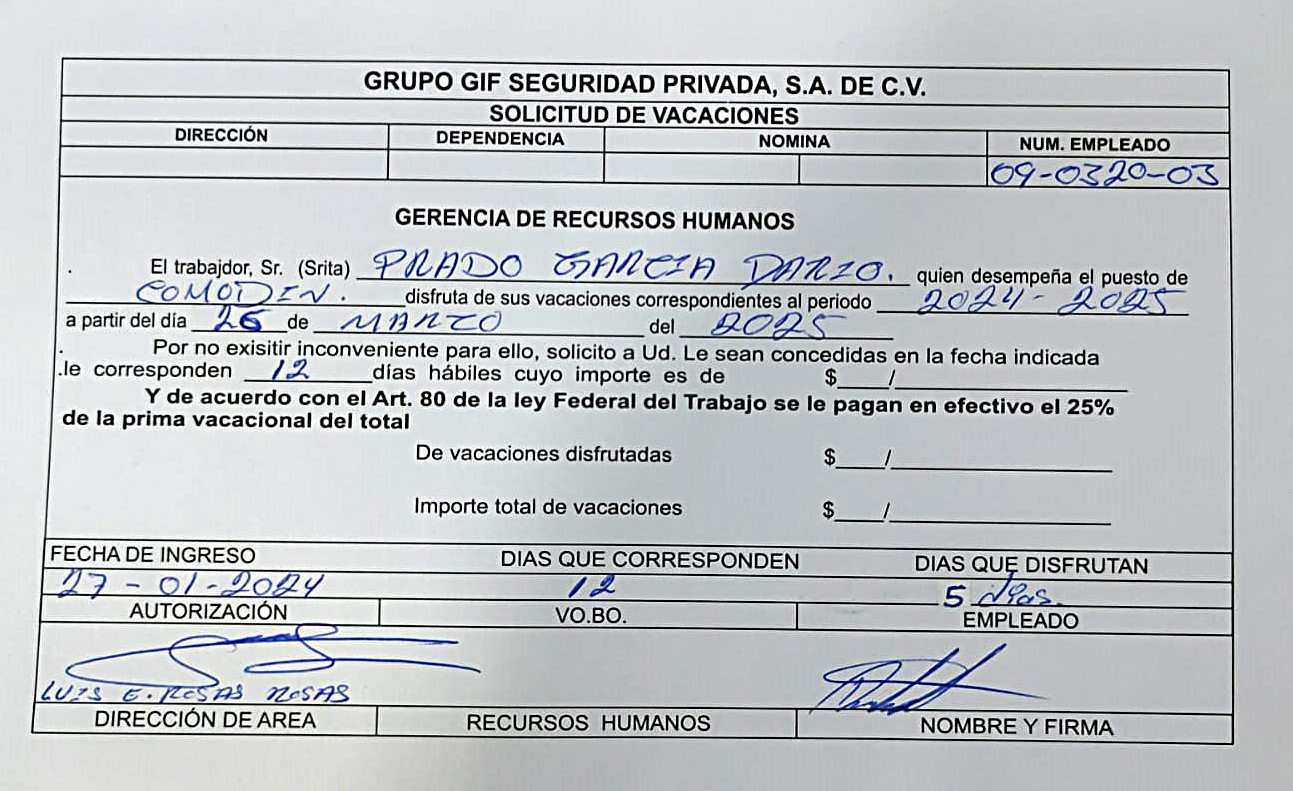 GRUPO GIF SEGURIDAD PRIVADA, S.A. DE C.V.
SOLICITUD DE VACACIONES
DIRECCIÓN DEPENDENCIA NOMINA NUM. EMPLEADO
09-0320-03
GERENCIA DE RECURSOS HUMANOS
. El trabajdor, Sr. (Srita) PRADO GARCIA DARIO. quien desempeña el puesto de
COMODIN. disfruta de sus vacaciones correspondientes al periodo 2024-2025
a partir del día 26 de MARZO del 2025
. Por no exisitir inconveniente para ello, solicito a Ud. Le sean concedidas en la fecha indicada
.le corresponden 12 días hábiles cuyo importe es de $____/____
Y de acuerdo con el Art. 80 de la ley Federal del Trabajo se le pagan en efectivo el 25%
de la prima vacacional del total
De vacaciones disfrutadas $____/____
Importe total de vacaciones $____/____
FECHA DE INGRESO DIAS QUE CORRESPONDEN DIAS QUE DISFRUTAN
27-01-2024 12 5 dias.
AUTORIZACIÓN VO.BO. EMPLEADO
LUIS E. ROSAS ROSAS
DIRECCIÓN DE AREA RECURSOS HUMANOS NOMBRE Y FIRMA